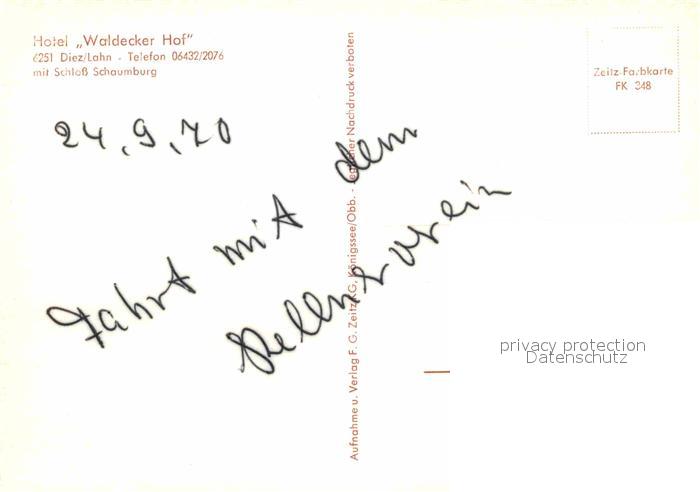 Hotel „Waldecker Hof“
6251 Diez/Lahn - Telefon 06432/2076
mit Schloß Schaumburg
Zeitz-Farbkarte
FK 348
24.9.70
Fahrt mit dem
Kellnerverein
Aufnahme u. Verlag F. G. Zeitz KG, Königssee/Obb. - Jeglicher Nachdruck verboten
privacy protection
Datenschutz